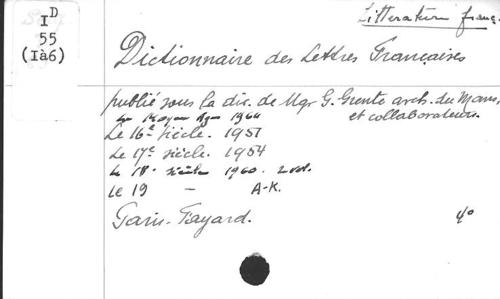 Littérature franç.
I D
55
(Ià6)
Dictionnaire des Lettres Françaises
publié sous la dir. de Mgr G. Grente arch. du Mans,
et collaborateurs.
Le Moyen Age 1964
Le 16e siècle. 1951
Le 17e siècle. 1954
Le 18e siècle 1960. 2 vol.
Le 19 - A-K.
Paris-Fayard. 4o